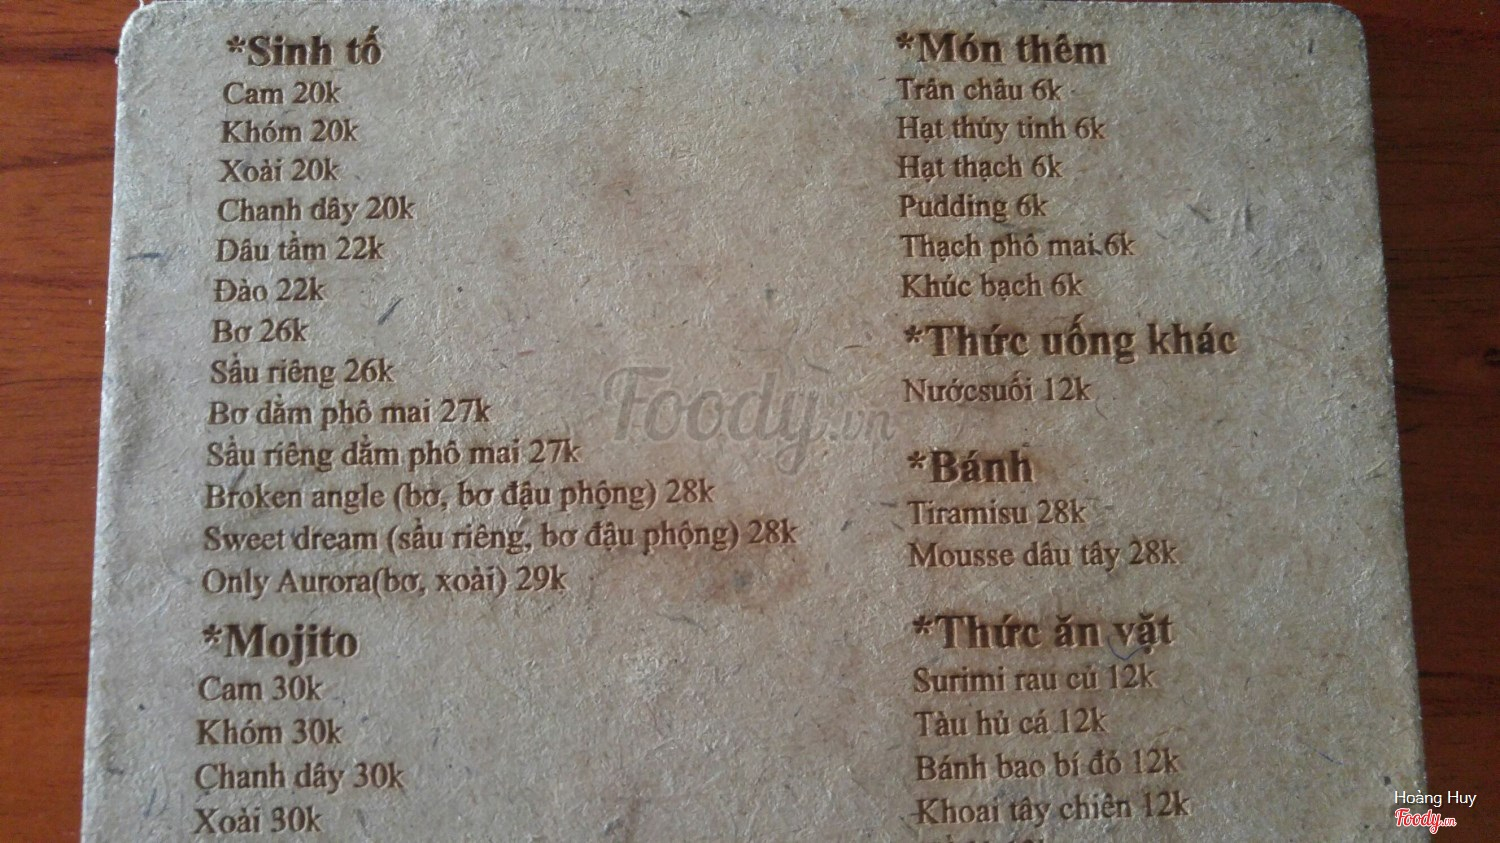 *Sinh tố
Cam 20k
Khóm 20k
Xoài 20k
Chanh dây 20k
Dâu tằm 22k
Đào 22k
Bơ 26k
Sầu riêng 26k
Bơ dằm phô mai 27k
Sầu riêng dằm phô mai 27k
Broken angle (bơ, bơ đậu phộng) 28k
Sweet dream (sầu riêng, bơ đậu phộng) 28k
Only Aurora(bơ, xoài) 29k
*Mojito
Cam 30k
Khóm 30k
Chanh dây 30k
Xoài 30k
*Món thêm
Trân châu 6k
Hạt thủy tinh 6k
Hạt thạch 6k
Pudding 6k
Thạch phô mai 6k
Khúc bạch 6k
*Thức uống khác
Nướcsuối 12k
*Bánh
Tiramisu 28k
Mousse dâu tây 28k
*Thức ăn vặt
Surimi rau củ 12k
Tàu hủ cá 12k
Bánh bao bí đỏ 12k
Khoai tây chiên 12k
Foody.vn
Hoàng Huy
Foody.vn